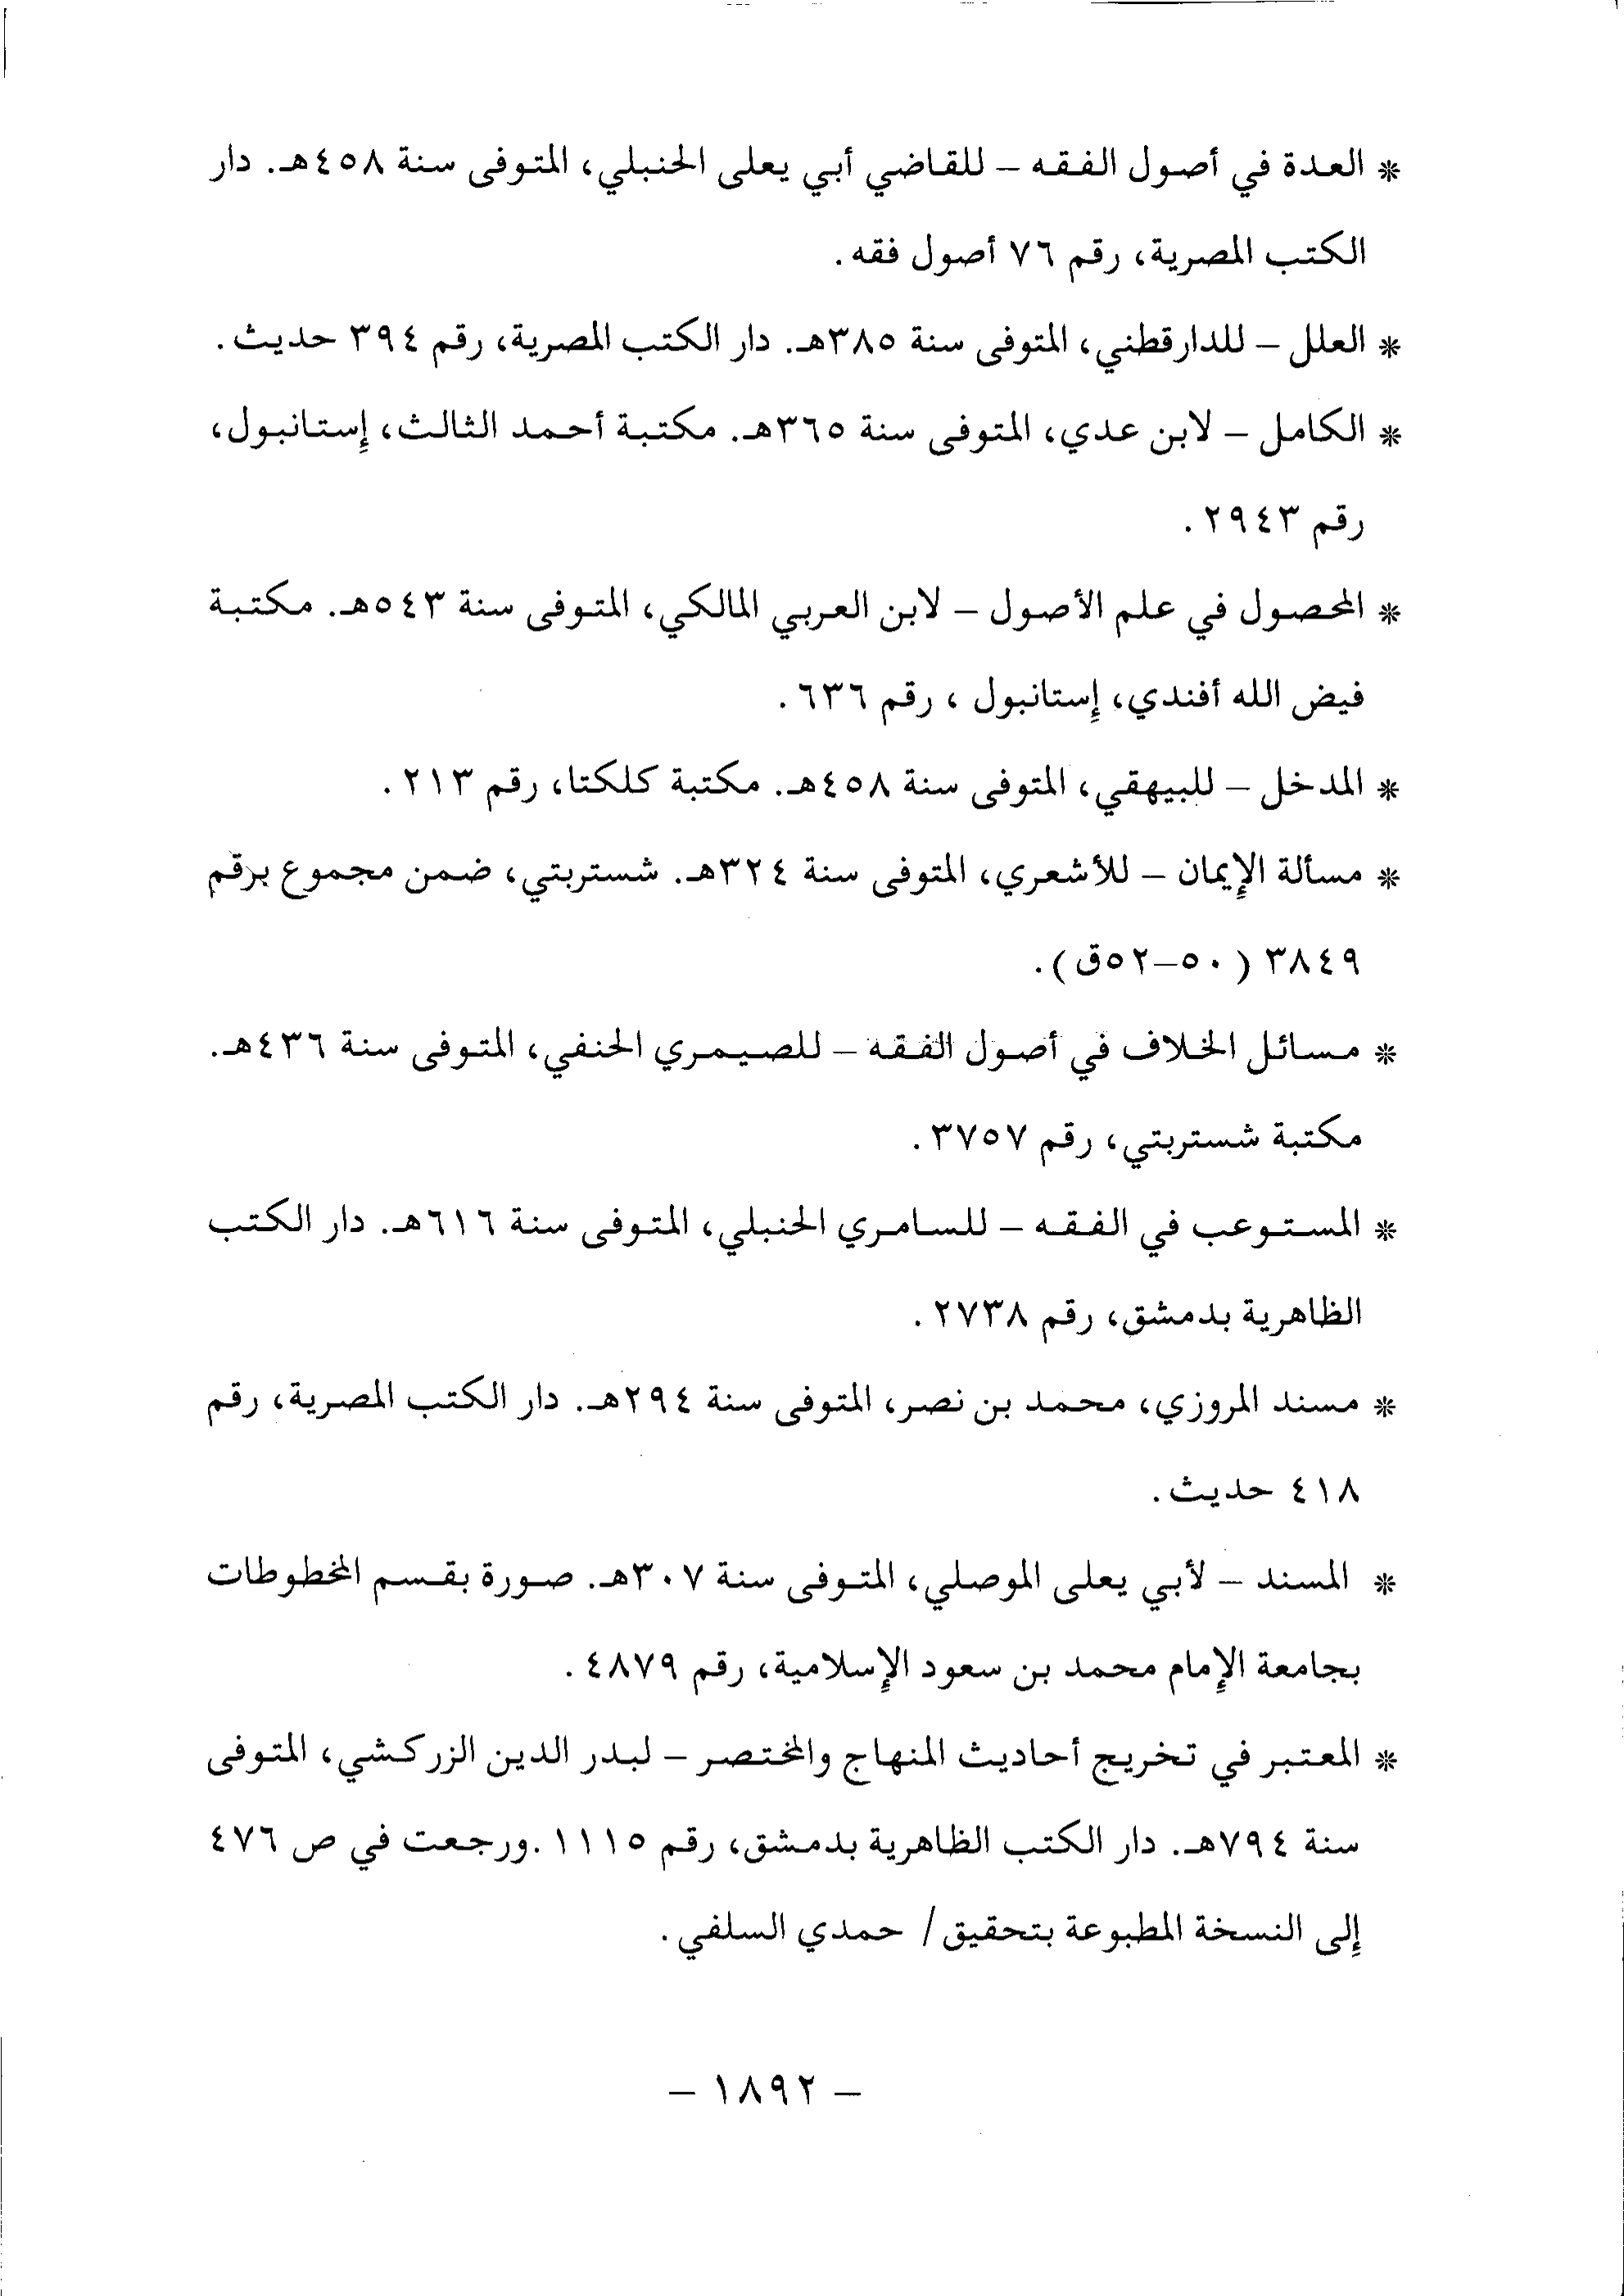 * العدة في أصول الفقه – للقاضي أبي يعلى الحنبلي، المتوفى سنة ٤٥٨هـ. دار
الكتب المصرية، رقم ٧٦ أصول فقه.
* العلل – للدارقطني، المتوفى سنة ٣٨٥هـ. دار الكتب المصرية، رقم ٣٩٤ حديث.
* الكامل – لابن عدي، المتوفى سنة ٣٦٥هـ. مكتبة أحمد الثالث، إستانبول،
رقم ٢٩٤٣.
* المحصول في علم الأصول – لابن العربي المالكي، المتوفى سنة ٥٤٣هـ. مكتبة
فيض الله أفندي، إستانبول ، رقم ٦٣٦.
* المدخل – للبيهقي، المتوفى سنة ٤٥٨هـ. مكتبة كلكتا، رقم ٢١٣.
* مسألة الإيمان – للأشعري، المتوفى سنة ٣٢٤هـ. شستربتي، ضمن مجموع برقم
٣٨٤٩ (٥٠–٥٢ق).
* مسائل الخلاف في أصول الفقه – للصيمري الحنفي، المتوفى سنة ٤٣٦هـ.
مكتبة شستربتي، رقم ٣٧٥٧.
* المستوعب في الفقه – للسامري الحنبلي، المتوفى سنة ٦١٦هـ. دار الكتب
الظاهرية بدمشق، رقم ٢٧٣٨.
* مسند المروزي، محمد بن نصر، المتوفى سنة ٢٩٤هـ. دار الكتب المصرية، رقم
٤١٨ حديث.
* المسند – لأبي يعلى الموصلي، المتوفى سنة ٣٠٧هـ. صورة بقسم المخطوطات
بجامعة الإمام محمد بن سعود الإسلامية، رقم ٤٨٧٩.
* المعتبر في تخريج أحاديث المنهاج والمختصر – لبدر الدين الزركشي، المتوفى
سنة ٧٩٤هـ. دار الكتب الظاهرية بدمشق، رقم ١١١٥ .ورجعت في ص ٤٧٦
إلى النسخة المطبوعة بتحقيق/ حمدي السلفي.
– ١٨٩٢ –